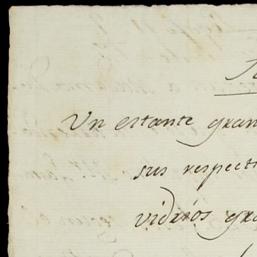 Un estante gran
sus respecti
vidrios gra